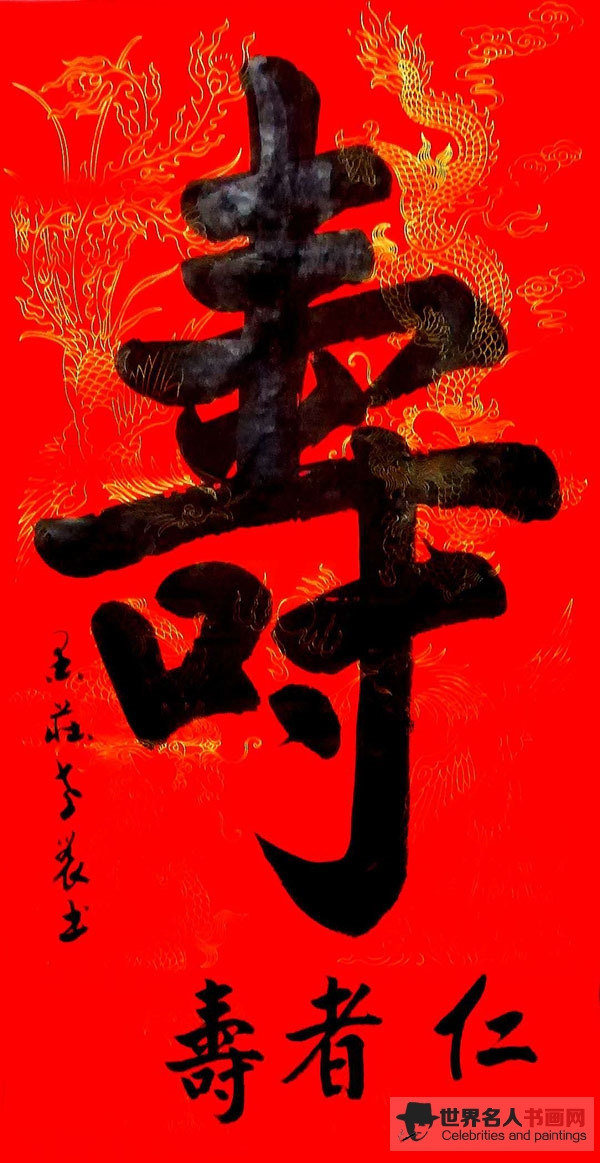 壽
仁者壽
世界名人书画网
Celebrities and paintings